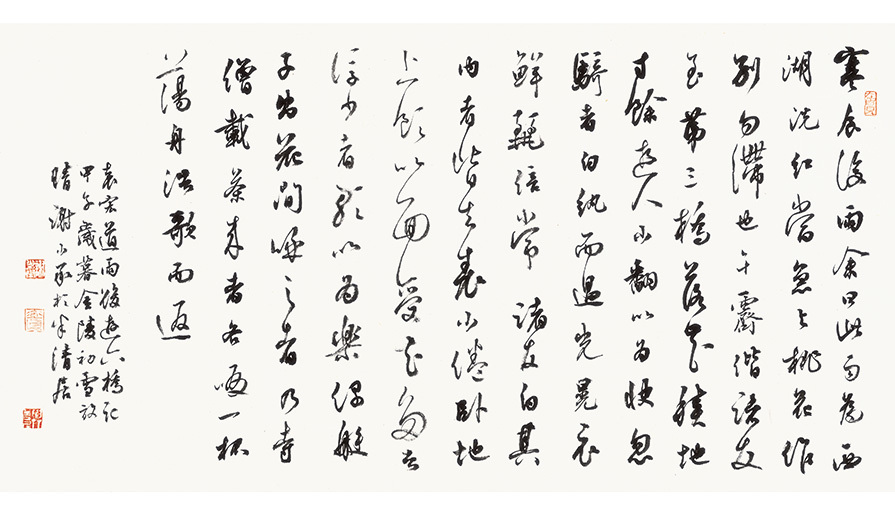 寒食後雨余曰此雨為西
湖洗紅當急與桃花作
別勿滯也午霽偕諸友
至第三橋落花積地
寸餘遊人少翻以為快忽
騎者白紈而過光晃衣
鮮麗倍常諸友白其
內者皆去表少倦卧地
上飲以面受花多者
浮少者歌以為樂偶艇
子出花間呼之者乃寺
僧載茶來者各啜一杯
蕩舟浩歌而返
袁宏道雨後遊六橋記
甲午歲暮金陵初雪放
晴謝少承於半清居